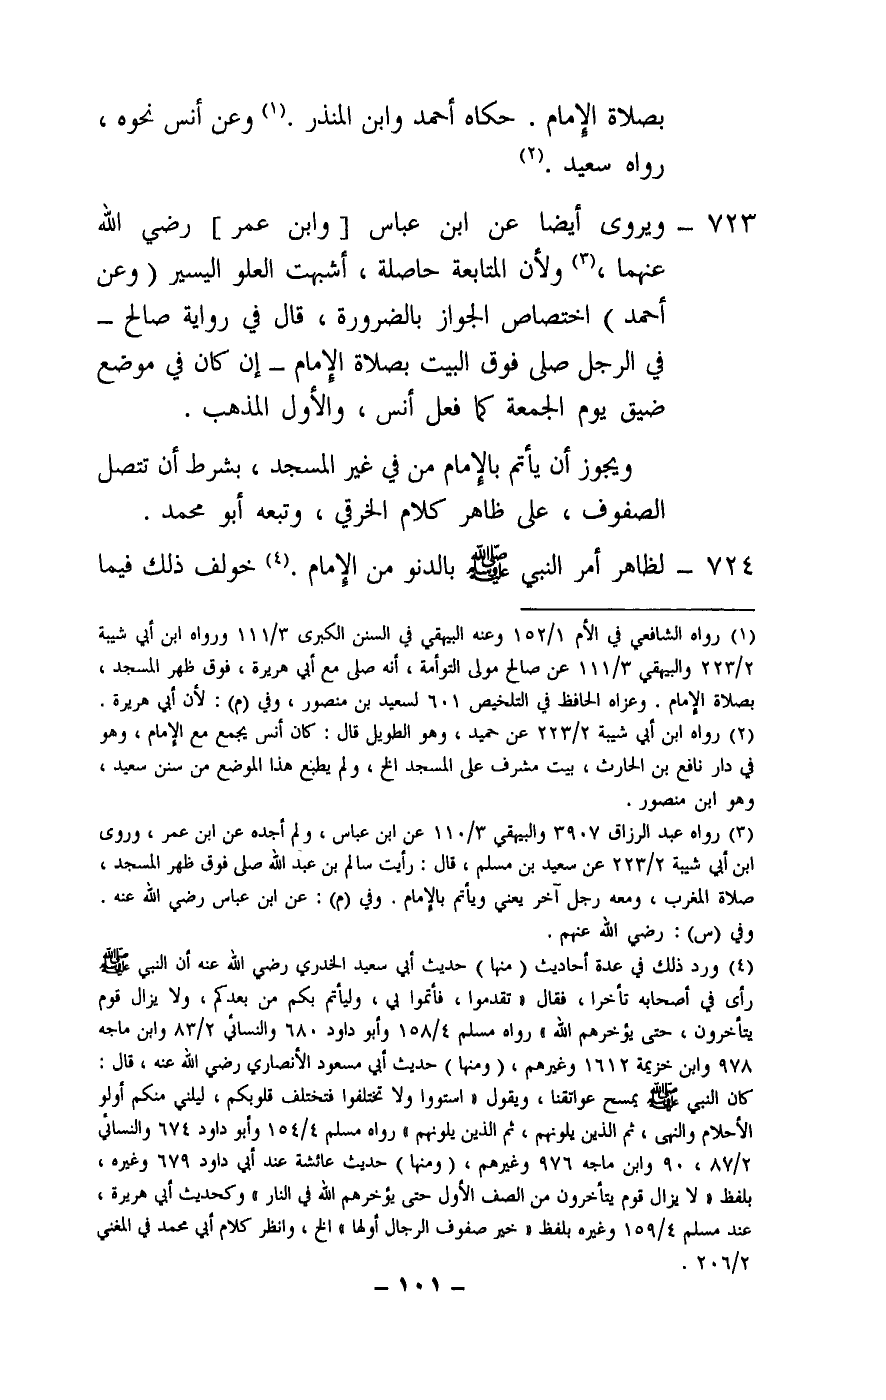 بصلاة الإمام . حكاه أحمد وابن المنذر .(١) وعن أنس نحوه ،
رواه سعيد .(٢)
٧٢٣ – ويروى أيضا عن ابن عباس [ وابن عمر ] رضي الله
عنهما ،(٣) ولأن المتابعة حاصلة ، أشبهت العلو اليسير ( وعن
أحمد ) اختصاص الجواز بالضرورة ، قال في رواية صالح –
في الرجل صلى فوق البيت بصلاة الإمام – إن كان في موضع
ضيق يوم الجمعة كما فعل أنس ، والأول المذهب .
ويجوز أن يأتم بالإمام من في غير المسجد ، بشرط أن تتصل
الصفوف ، على ظاهر كلام الخرقي ، وتبعه أبو محمد .
٧٢٤ – لظاهر أمر النبي ﷺ بالدنو من الإمام .(٤) خولف ذلك فيما
(١) رواه الشافعي في الأم ١٥٢/١ وعنه البيهقي في السنن الكبرى ١١١/٣ ورواه ابن أبي شيبة
٢٢٣/٢ والبيهقي ١١١/٣ عن صالح مولى التوأمة ، أنه صلى مع أبي هريرة ، فوق ظهر المسجد ،
بصلاة الإمام . وعزاه الحافظ في التلخيص ٦٠١ لسعيد بن منصور ، وفي (م) : لأن أبي هريرة .
(٢) رواه ابن أبي شيبة ٢٢٣/٢ عن حميد ، وهو الطويل قال : كان أنس يجمع مع الإمام ، وهو
في دار نافع بن الحارث ، بيت مشرف على المسجد الخ ، ولم يطبع هذا الموضع من سنن سعيد ،
وهو ابن منصور .
(٣) رواه عبد الرزاق ٣٩٠٧ والبيهقي ١١٠/٣ عن ابن عباس ، ولم أجده عن ابن عمر ، وروى
ابن أبي شيبة ٢٢٣/٢ عن سعيد بن مسلم ، قال : رأيت سالم بن عبد الله صلى فوق ظهر المسجد ،
صلاة المغرب ، ومعه رجل آخر يعني ويأتم بالإمام . وفي (م) : عن ابن عباس رضي الله عنه .
وفي (س) : رضي الله عنهم .
(٤) ورد ذلك في عدة أحاديث ( منها ) حديث أبي سعيد الخدري رضي الله عنه أن النبي ﷺ
رأى في أصحابه تأخرا ، فقال « تقدموا ، فأتموا بي ، وليأتم بكم من بعدكم ، ولا يزال قوم
يتأخرون ، حتى يؤخرهم الله » رواه مسلم ١٥٨/٤ وأبو داود ٦٨٠ والنسائي ٨٣/٢ وابن ماجه
٩٧٨ وابن خزيمة ١٦١٢ وغيرهم ، ( ومنها ) حديث أبي مسعود الأنصاري رضي الله عنه ، قال :
كان النبي ﷺ يمسح عواتقنا ، ويقول « استووا ولا تختلفوا فتختلف قلوبكم ، ليلني منكم أولو
الأحلام والنهى ، ثم الذين يلونهم ، ثم الذين يلونهم » رواه مسلم ١٥٤/٤ وأبو داود ٦٧٤ والنسائي
٨٧/٢ ، ٩٠ وابن ماجه ٩٧٦ وغيرهم ، ( ومنها ) حديث عائشة عند أبي داود ٦٧٩ وغيره ،
بلفظ « لا يزال قوم يتأخرون من الصف الأول حتى يؤخرهم الله في النار » وكحديث أبي هريرة ،
عند مسلم ١٥٩/٤ وغيره بلفظ « خير صفوف الرجال أولها » الخ ، وانظر كلام أبي محمد في المغني
٢٠٦/٢ .
– ١٠١ –